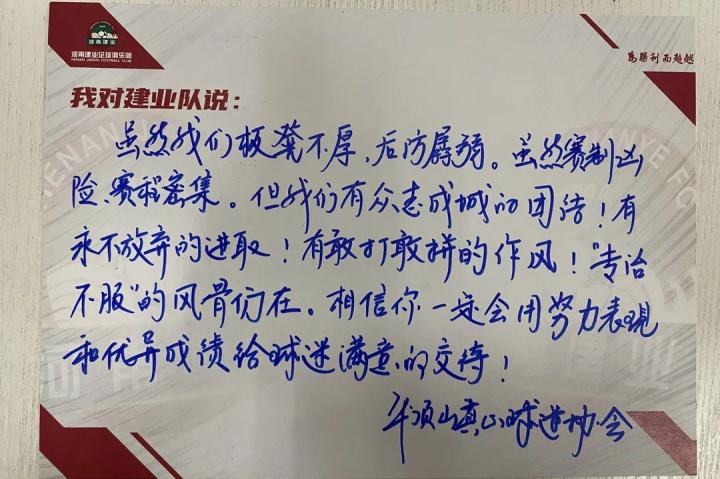 河南建业
河南建业足球俱乐部
HENAN JIANYE FOOTBALL CLUB
为胜利而超越
我对建业队说：
虽然我们板凳不厚，后防孱弱。虽然赛制凶
险、赛程密集。但我们有众志成城的团结！有
永不放弃的进取！有敢打敢拼的作风！“专治
不服”的风骨仍在。相信你一定会用努力表现
和优异成绩给球迷满意的交待！
平顶山真心球迷协会